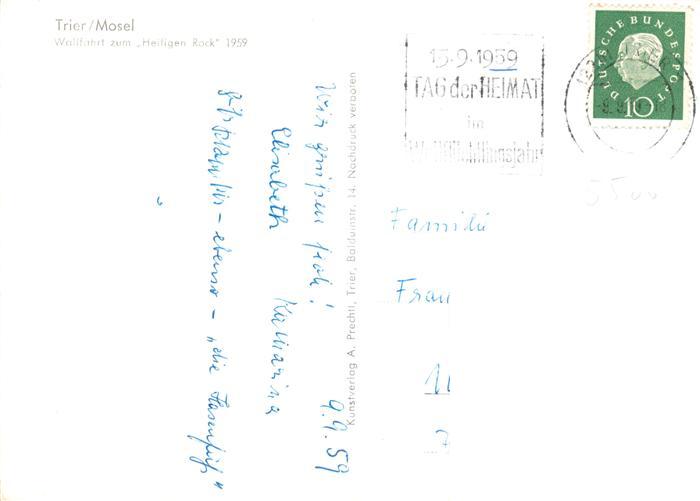 Trier/Mosel
Wallfahrt zum „Heiligen Rock" 1959
13.9.1959
TAG der HEIMAT
im
Weltflüchtlingsjahr
DEUTSCHE BUNDESPOST
10
5500
Wir grüßen froh!
Elisabeth Katharina
9.9.59
- ebenso - „die Hasenfüß"
Kunstverlag A. Prechtl, Trier, Balduinstr. 14. Nachdruck verboten
Familie
Frau